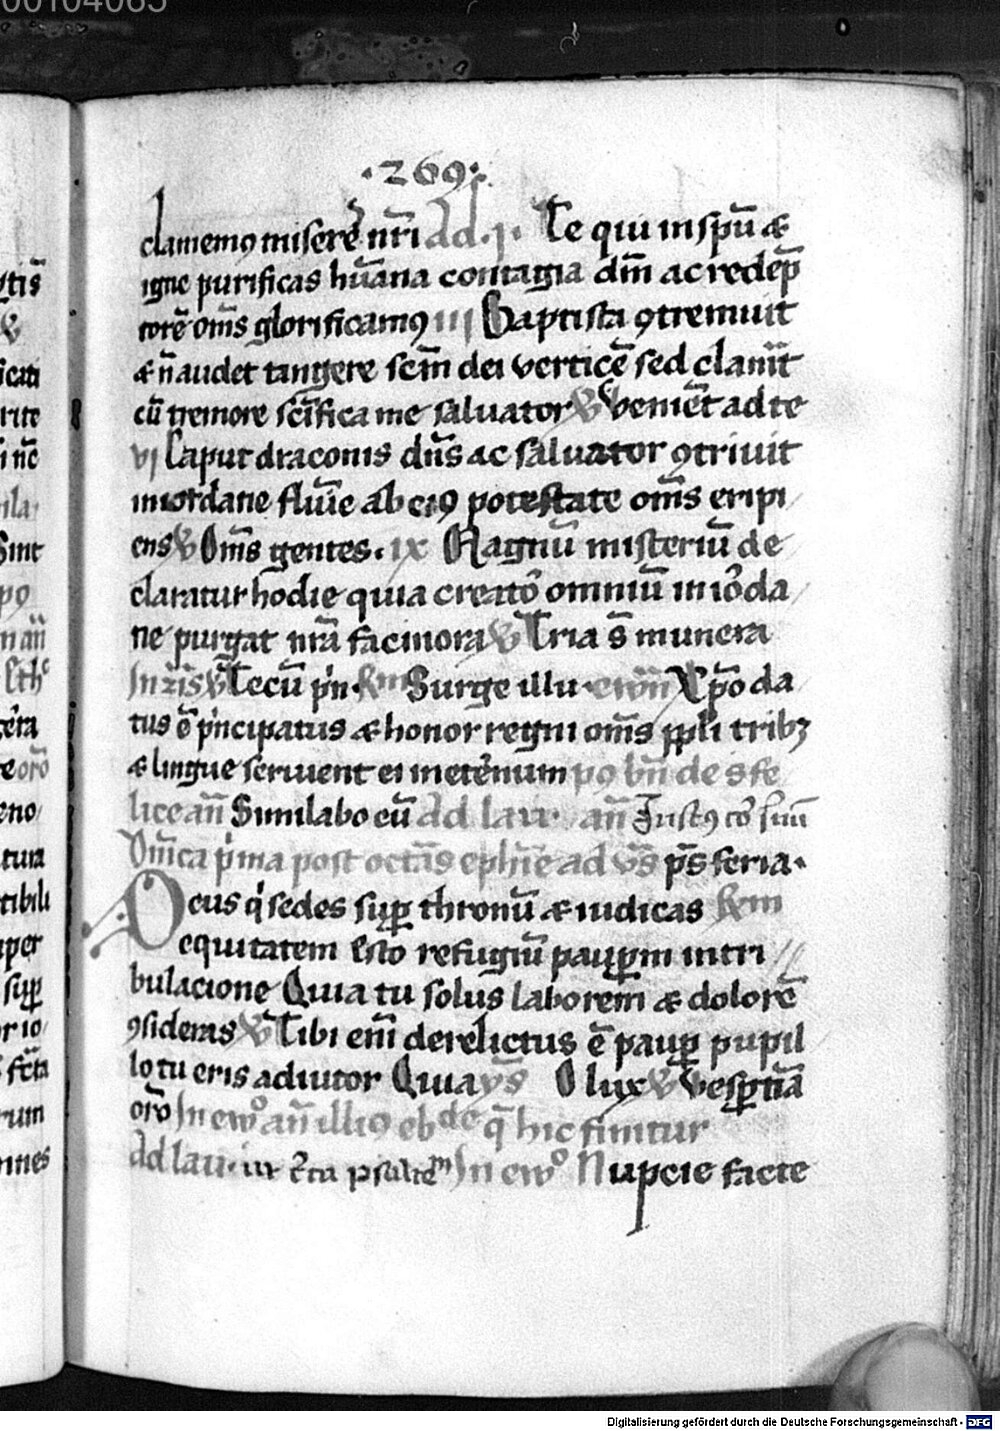 00104065
·269·
clamemꝯ miserē nr̄i Ad .j. Te qui in spū ⁊
igne purificas hūana contagia dm̄ ac redēp
torē om̄s glorificamꝯ iij Baptista ꝯtremuit
⁊ n̄ audet tangere scm̄ dei verticē sed clamīt
cū tremore scīfica me saluator ℣ Veniēt ad te
vj Caput draconis dn̄s ac saluator ꝯtriuit
in iordane fluuīe ab eiꝯ potestate om̄s eripi
ens ℣ Om̄s gentes. ix Magnū misteriū de
claratur hodie quia creatō omniū in iōda
ne purgat nr̄a facinora ℣ Tria s̄ munera
In ℣ Tecū pi̇n. Surge illu. xp̄o da
tus ē pi̇ncipatus ⁊ honor regni om̄s ppl̄i tribꝫ
⁊ lingue seruient ei in etēnum pꝯ bn̄ de s fe
lice an̄ Similabo eū Ad lau. an̄ Justꝯ
Dn̄ica pi̇ma post octās ephīe ad v̄s p̄s feria.
Deus qi̇ sedes suꝑ thronū ⁊ iudicas
equitatem Esto refugiū pauꝑm in tri
bulacione Quia tu solus laborem̄ ⁊ dolorē
ꝯsideras ℣ Tibi em̄ derelictus ē pauꝑ pupil
lo tu eris adiutor Quia ys̄ O lux ℣ Vesꝑtīa
orō In ewo an̄ illiꝯ ebde q̄ hic finitur
Ad lau. In ewo Nupcie facte
Digitalisierung gefördert durch die Deutsche Forschungsgemeinschaft - DFG